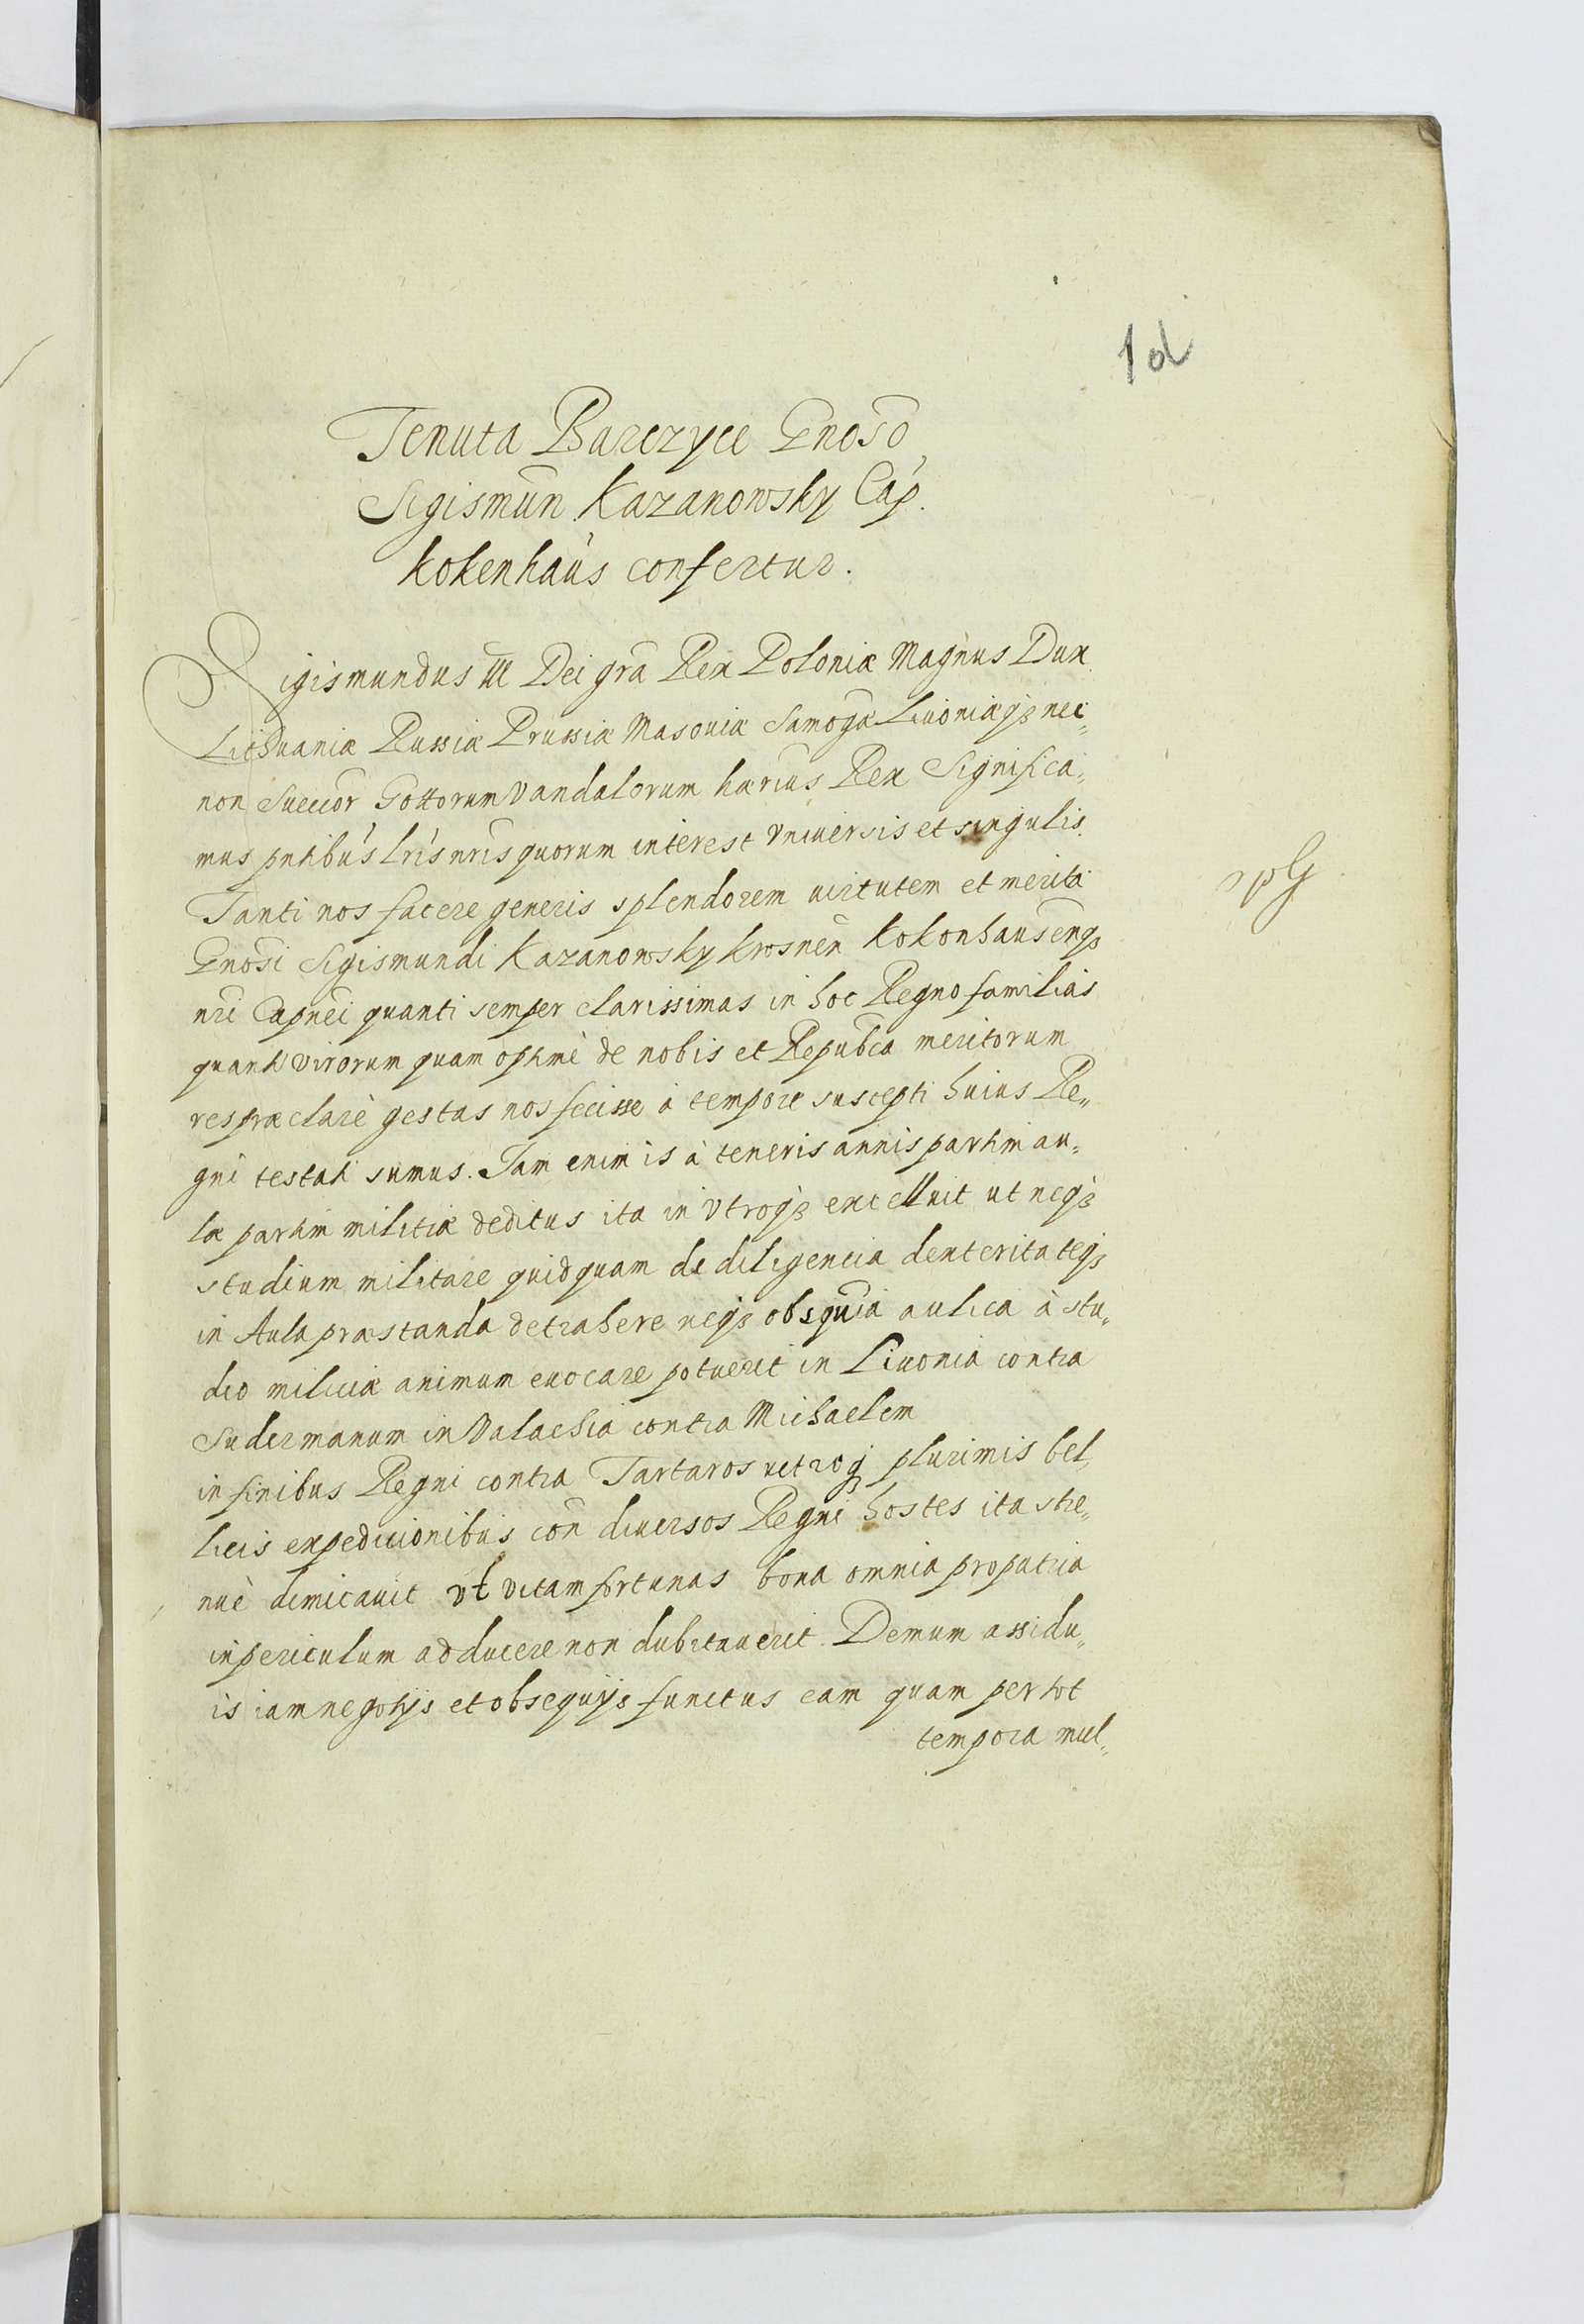 Tenuta Barczyce Gnoso
Sigismun Kazanowsky Cap.
kokenhaus confertur.
Sigismundus III Dei gra Rex Poloniæ Magnus Dux
Lithuaniæ Russiæ Prussiæ Masouiæ Samogæ Liuoniæqꝫ nec„
non Sueccor Gottorum Vandalorum hærius Rex Significa„
mus pntibus lris nris quorum interest vniuersis et singulis.
Tanti nos facere generis splendorem uirtutem et merita
Gnosi Sigismundi Kazanowsky krosnen kokonhausenqꝫ
nri Capnei quanti semper clarissimas in hoc Regno familias
quanti virorum quam optimè de nobis et Republica meritorum
res præclarè gestas nos fecisse à tempore suscepti huius Re„
gni testati sumus. Tam enim is à teneris annis partim au„
læ partim militiæ deditus ita in vtroqꝫ excelluit ut neqꝫ
studium militare quidquam de diligencia dexteritateqꝫ
in Aula præstanda detrahere neqꝫ obsquia aulica à stu„
dio miliciæ animum euocare potuerit in Liuonia contra
Sudermanum in Valachia contra Michaelem
in finibus Regni contra Tartaros uetroqꝫ plurimis bel„
licis expedicionibus con diuersos Regni hostes ita stre„
nuè dimicauit vt vitam fortunas bona omnia pro patria
in periculum adducere non dubitauerit. Demum assidu„
is iam negotijs et obsequijs functus eam quam per tot
tempora mul„